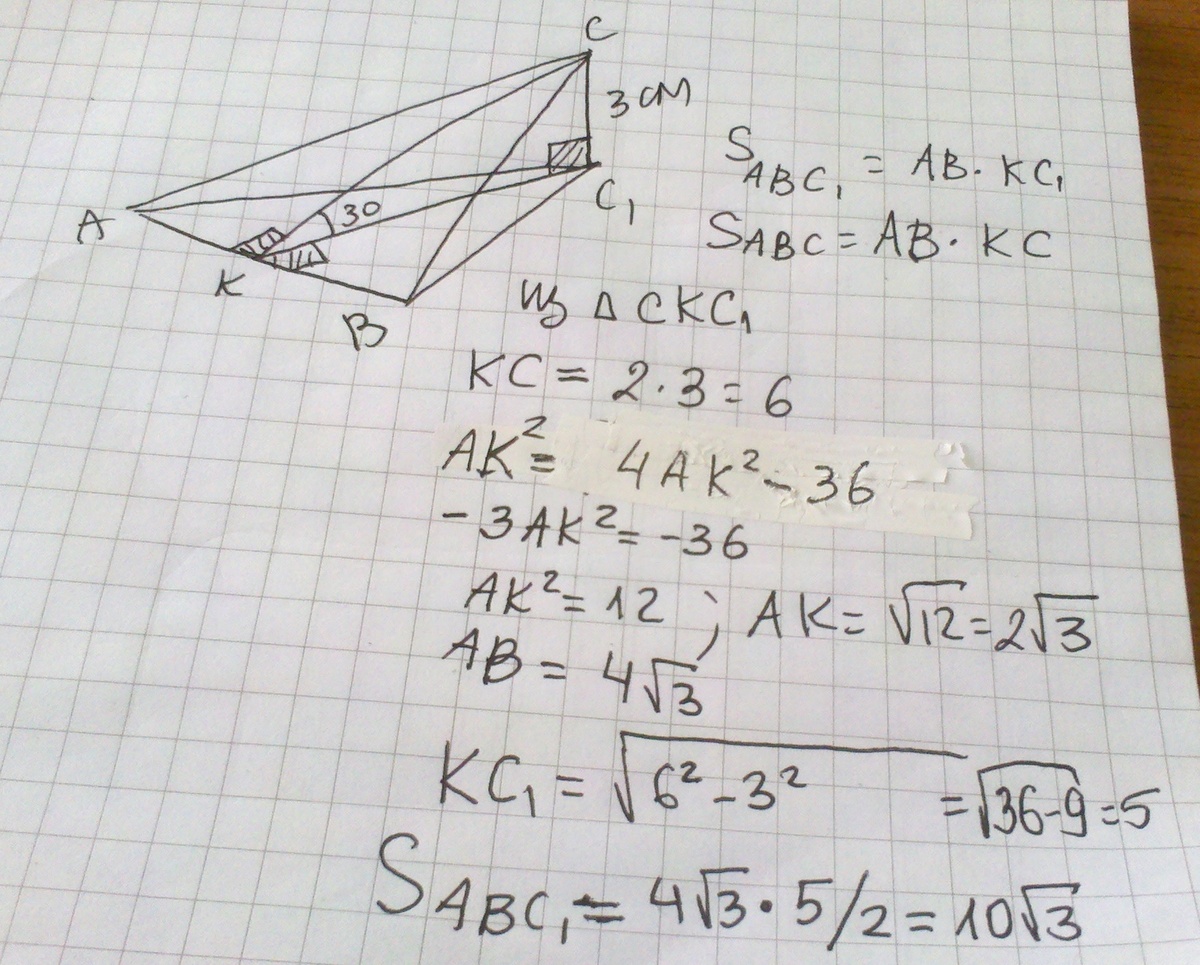 C
3 см
C₁
30
A
K
B
S ABC₁ = AB · KC₁
S ABC = AB · KC
из Δ CKC₁
KC = 2 · 3 = 6
AK² = 4AK² - 36
-3AK² = -36
AK² = 12 ; AK = √12 = 2√3
AB = 4√3
KC₁ = √6² - 3² = √36-9 = 5
S ABC₁ = 4√3 · 5/2 = 10√3